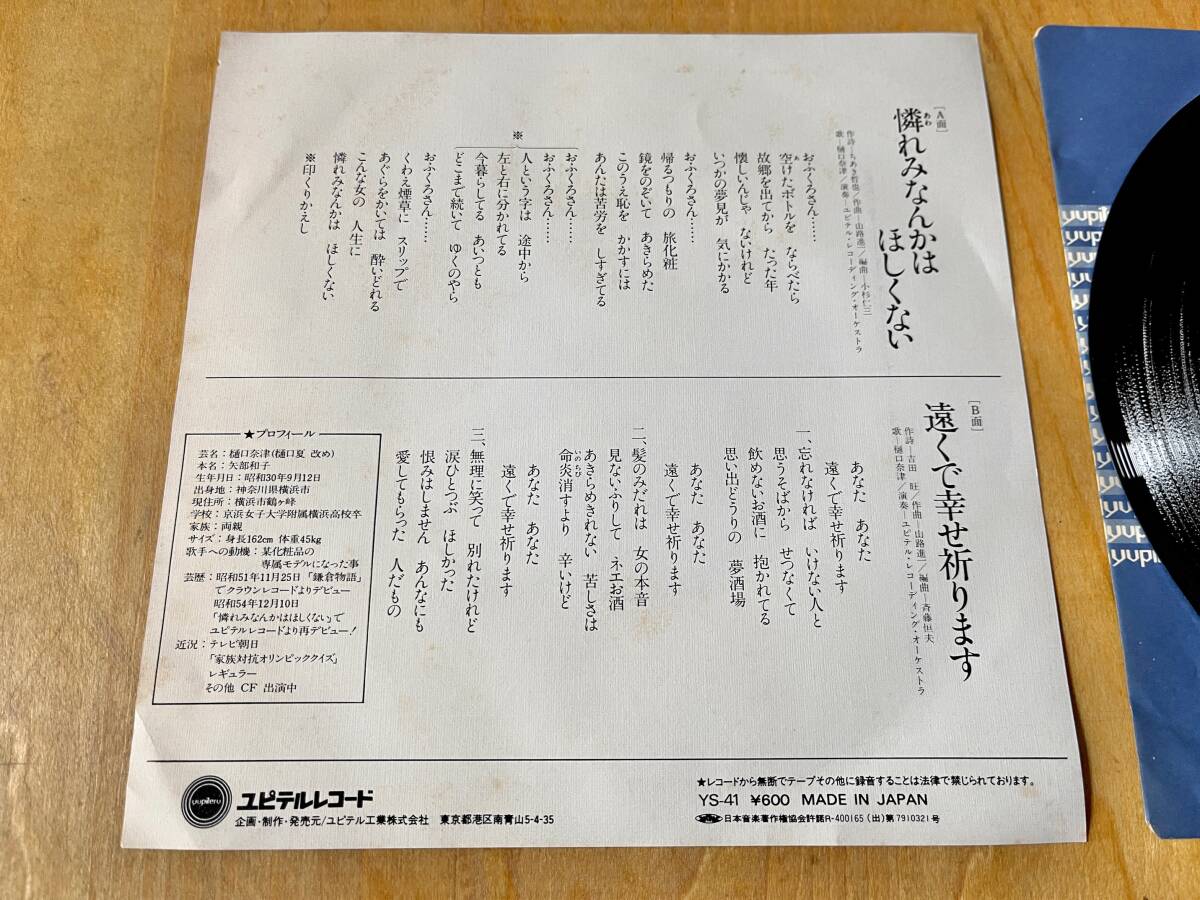 ［A面］
憐れみなんかは
あわ
ほしくない
作詩－ちあき哲也／作曲－山路進一／編曲－小杉仁三
歌－樋口奈津／演奏－ユピテル・レコーディング・オーケストラ
おふくろさん……
空けたボトルを ならべたら
あ
故郷を出てから たった年
懐しいんじゃ ないけれど
いつかの夢見が 気にかかる
おふくろさん……
帰るつもりの 旅化粧
鏡をのぞいて あきらめた
このうえ恥を かかすには
あんたは苦労を しすぎてる
※
おふくろさん……
おふくろさん……
人という字は 途中から
左と右に分かれてる
今暮らしてる あいつとも
どこまで続いて ゆくのやら
おふくろさん……
くわえ煙草に スリップで
あぐらをかいては 酔いどれる
こんな女の 人生に
憐れみなんかは ほしくない
※印くりかえし
［B面］
遠くで幸せ祈ります
作詩－吉田 旺／作曲－山路進一／編曲－斉藤恒夫
歌－樋口奈津／演奏－ユピテル・レコーディング・オーケストラ
あなた あなた
遠くで幸せ祈ります
一、忘れなければ いけない人と
思うそばから せつなくて
飲めないお酒に 抱かれてる
思い出どうりの 夢酒場
あなた あなた
遠くで幸せ祈ります
二、髪のみだれは 女の本音
見ないふりして ネエお酒
あきらめきれない 苦しさは
命炎消すより 辛いけど
いのちび
あなた あなた
遠くで幸せ祈ります
三、無理に笑って 別れたけれど
涙ひとつぶ ほしかった
恨みはしません あんなにも
愛してもらった 人だもの
★プロフィール
芸名：樋口奈津(樋口夏 改め)
本名：矢部和子
生年月日：昭和30年9月12日
出身地：神奈川県横浜市
現住所：横浜市鶴ヶ峰
学校：京浜女子大学附属横浜高校卒
家族：両親
サイズ：身長162cm 体重45kg
歌手への動機：某化粧品の
専属モデルになった事
芸歴：昭和51年11月25日「鎌倉物語」
でクラウンレコードよりデビュー
昭和54年12月10日
「憐れみなんかはほしくない」で
ユピテルレコードより再デビュー！
近況：テレビ朝日
「家族対抗オリンピッククイズ」
レギュラー
その他 CF 出演中
yupiteru
ユピテルレコード
企画・制作・発売元/ユピテル工業株式会社 東京都港区南青山5-4-35
★レコードから無断でテープその他に録音することは法律で禁じられております。
YS-41 ¥600 MADE IN JAPAN
日本音楽著作権協会許諾R-400165(出)第7910321号